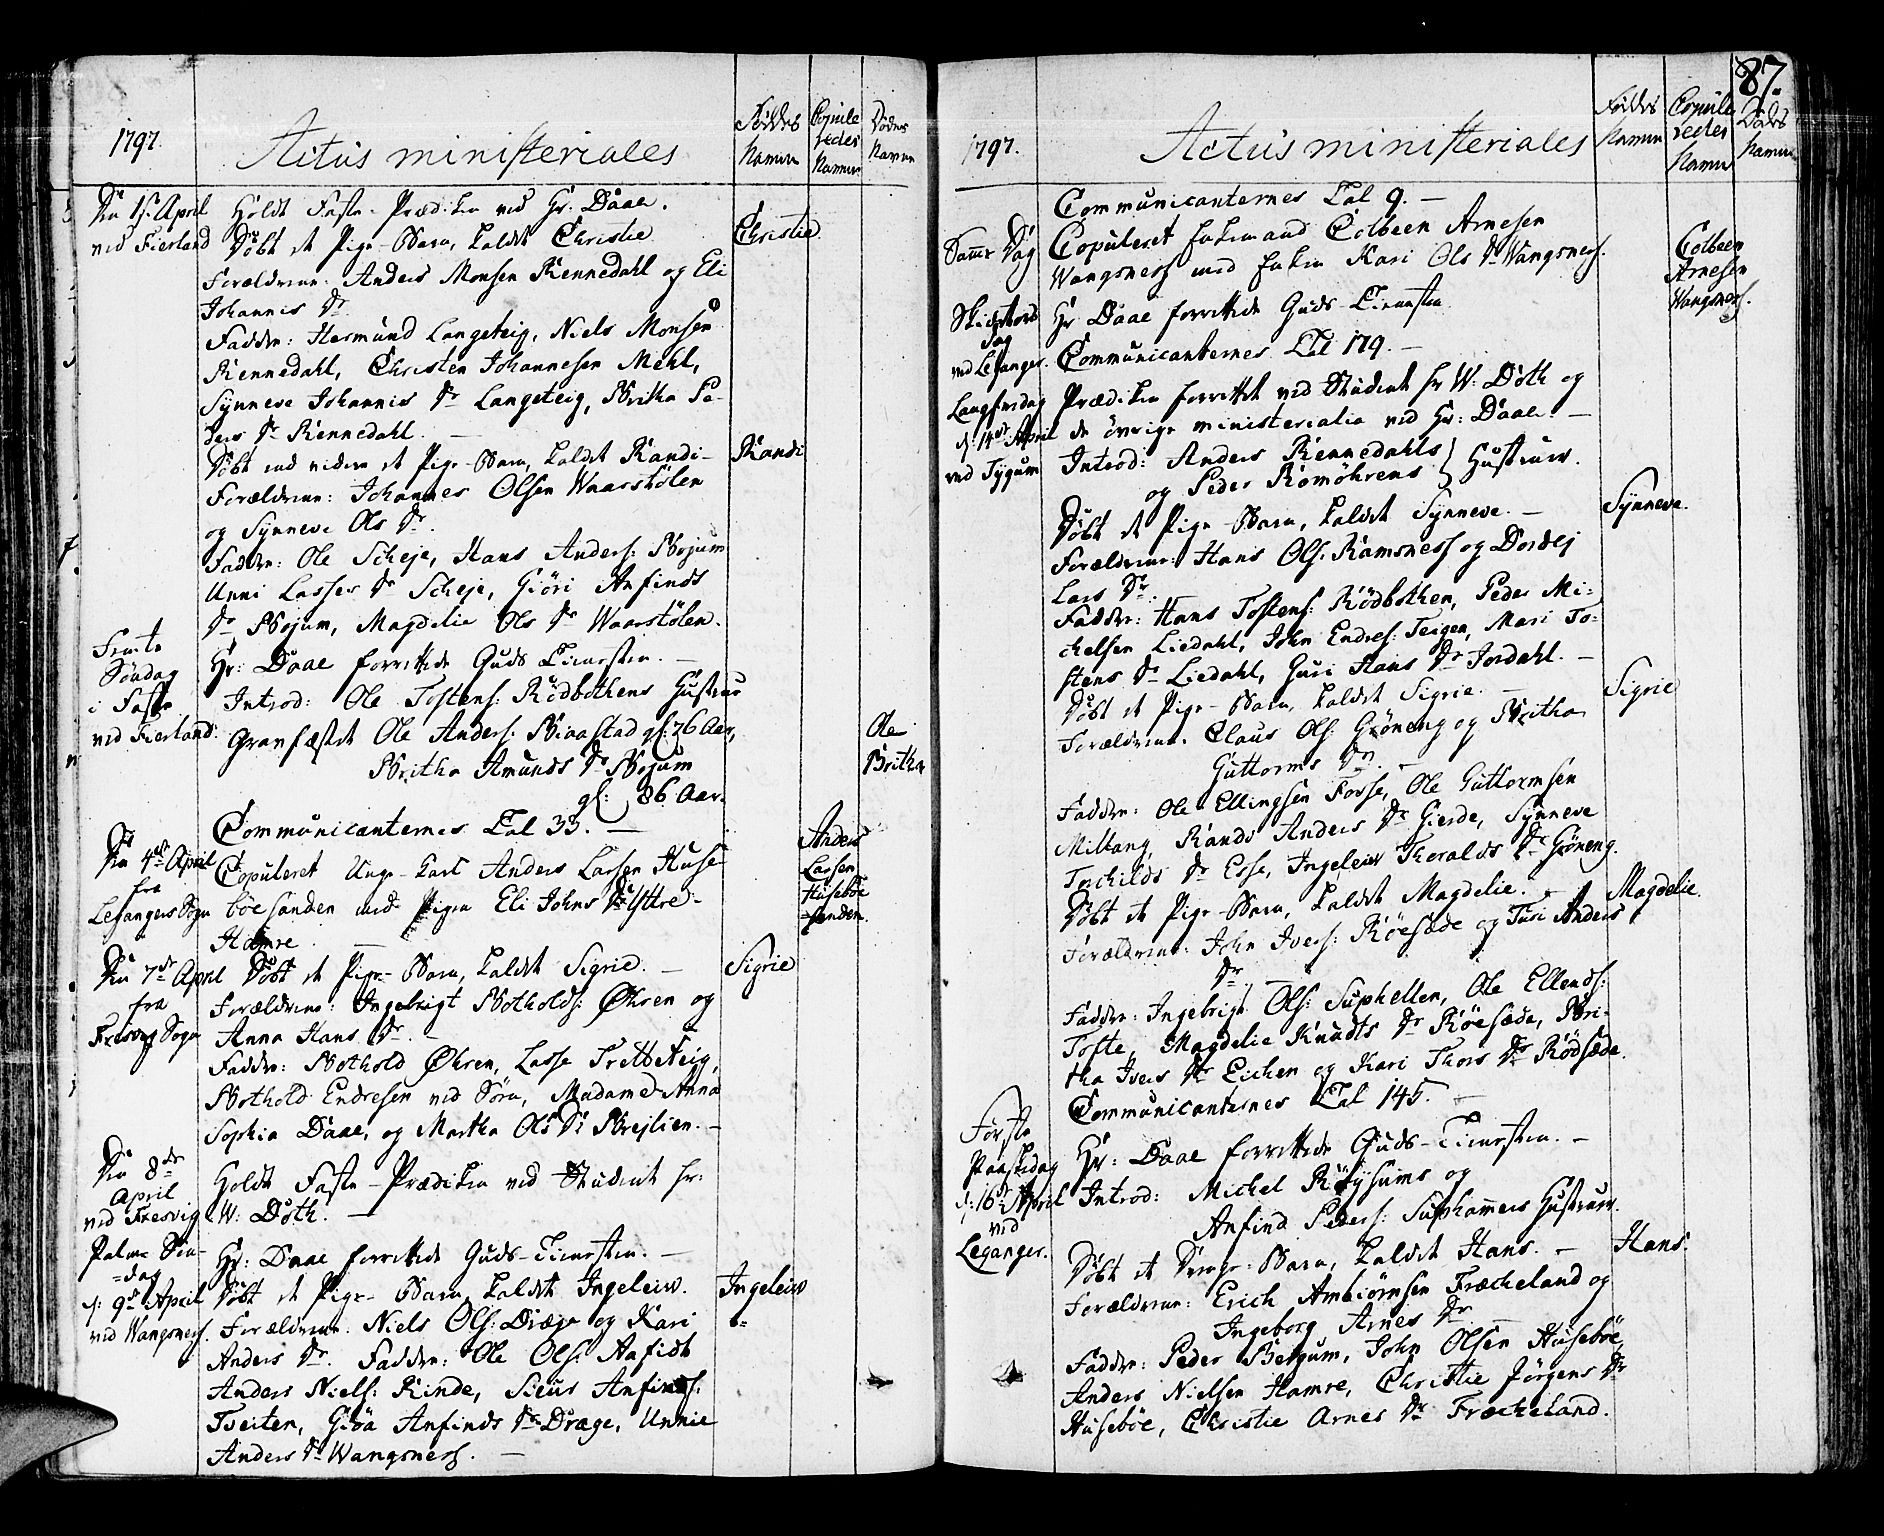 1797.
Actus ministeriales
Föddes Namne
Copuleredes Namne
Dödes Namne
Den 1ste April
ved Fierland
Holdt Faste-Prædiken ved Hr. Daae.
Döbt et Pige-Barn, kaldet Christie
Christie.
Forældrene: Anders Monsen Rennedahl og Eli
Johannis Dr
Faddere: Hermund Langeteig, Niels Monsen
Rennedahl, Christen Johannesen Mehl,
Synneve Johannis Dr Langeteig, Britha Pe-
ders Dr Rennedahl. —
Döbt end videre et Pige-Barn, kaldet Randi-
Randi
Forældrene: Johannes Olsen Waarstölen
og Synneve Ols Dr.
Faddere: Ole Scheje, Hans Anders: Bojum
Unni Lasses Dr Scheje, Giöri Anfinds
Dr Bojum, Magdelie Ols Dr Waarstölen.
Femte
Söndag
i Faste
ved Fierland.
Hr: Daae forrettede Guds Tienesten. —
Introd: Ole Tostens: Rödbothens Hustrue
Gravfæstet Ole Anders: Biaastad gl: 76 Aar,
Ole
Britha Amunds Dr Bojum
Britha
gl: 86 Aar.
Communicanternes Tal 33. —
Den 4de April
fra
Leganger Sogn
Copuleret Unge-Karl Anders Lassen Huse-
böesanden med Pigen Eli Johns Dr Yttre-
Hamre. —
Anders
Lassen
Huseböe
sanden.
Den 7de April
fra
Fresvig Sogn
Döbt et Pige-Barn, kaldet Sigrie. —
Sigrie
Forældrene: Ingebrigt Botholds: Öhren og
Anna Hans Dr. —
Faddere: Bothold Öhren, Lasse Tretteteig,
Bothold Endresen ved Söen, Madame Anna
Sophia Daae, og Martha Ols Dr Brejlien. —
Den 8de
April
ved Fresvig
Holdt Faste-Prædiken ved Student Hr:
W: Doth. —
Palme Sön-
=dag
d: 9de April
ved Wangsness.
Hr: Daae forrettede Guds-Tienesten. —
Döbt et Pige-Barn, kaldet Ingeleiv.
Ingeleiv
Forældrene: Niels Ols: Dræge og Kari
Anders Dr. Faddere: Ole Ols: Aafidt
Anders Niels: Rinde, Sieur Anfinds:
Tveiten, Giöa Anfinds Dr Dræge, Unnie
Anders Dr Wangsness. —
87.
1797.
Actus ministeriales
Föddes Namne
Copuleredes Namne
Dödes Namne
Communicanternes Tal 9. —
Samme Dag
Copuleret Enkemand Colbeen Arnesen
Wangsness med Enken Kari Ols Dr Wangsness.
Colbeen
Arnesen
Wangsness.
Skiertors
dag
ved Leganger.
Hr Daae forrettede Guds-Tienesten
Communicanternes Tal 179. —
Langfredag
d: 14de April
ved Tygum
Prædiken forrettet ved Student Hr W: Doth og
de övrige ministerialia ved Hr: Daae. —
Introd: Anders Rennedahls
og Peder Romöhrens } Hustruer.
Döbt et Pige-Barn, kaldet Synneve. —
Synneve.
Forældrene: Hans Ols: Ramsness og Dordej
Lars Dr. —
Faddere: Hans Tostens: Rödbothen, Peder Mi-
chelsen Liedahl, John Endres: Teigen, Mari To-
stens Dr Liedahl, Guri Hans Dr Jordahl. —
Döbt et Pige-Barn, kaldet Sigrie. —
Sigrie
Forældrene: Claus Ols: Gröneng og Britha
Guttorms Dr. —
Faddere: Ole Ellingsen Fosse, Ole Guttormsen
Millang, Randi Anders Dr Gierde, Synneve
Torchilds Dr Esse, Ingeleiv Thoralds Dr Gröneng.
Döbt et Pige-Barn, kaldet Magdelie. —
Magdelie.
Forældrene: John Ivers: Röesæde og Turi Anders
Dr. —
Faddere: Ingebrigt Ols: Suphellen, Ole Ellends:
Tofte, Magdelie Knudts Dr Röesæde, Bri-
tha Ivers Dr Eichen og Kari Thors Dr Rödsæde.
Communicanternes Tal 145. —
Förste
Paaskedag
d: 16de April
ved
Leganger.
Hr: Daae forrettede Guds-Tienesten. —
Introd: Michel Röysums og
Anfind Peders: Suphamers Hustruer.
Döbt et Drenge-Barn, kaldet Hans. —
Hans.
Forældrene: Erich Ambiörnsen Fræcheland og
Ingeborg Arnes Dr —
Faddere: Peder Bergum, John Olsen Huseböe,
Anders Nielsen Hamre, Christie Jörgens Dr
Huseböe, Christie Arnes Dr Fræcheland.